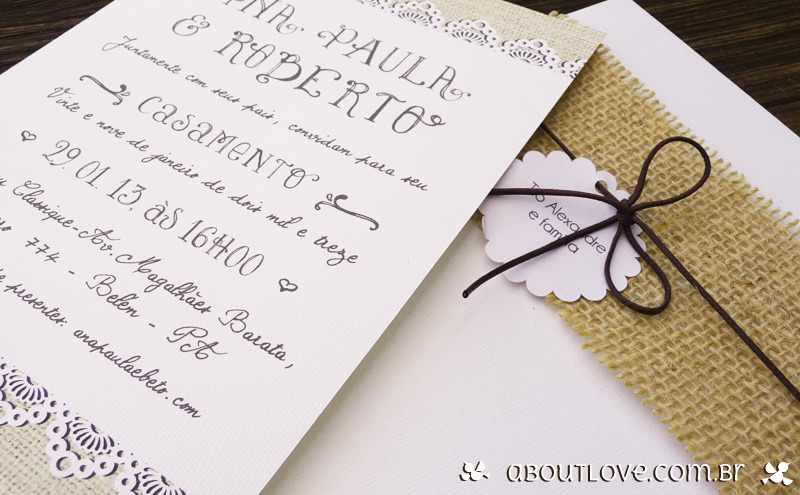 PAULA
& ROBERTO
Juntamente com seus pais, convidam para seu
CASAMENTO
Vinte e nove de janeiro de dois mil e treze
29.01.13, às 16H00
Classique-Av. Magalhães Barata,
774 - Belén - PA
presentes: anapaulaebeto.com
Tio Alexandre
e família
ABOUTLOVE.COM.BR